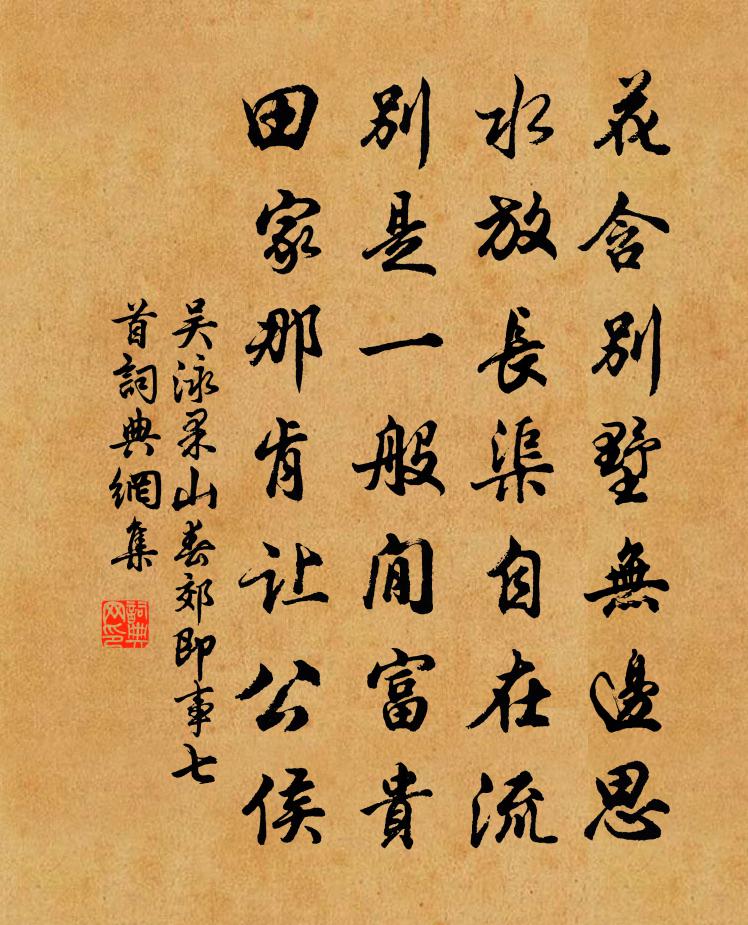 花含別墅無邊思
水放長渠自在流
別是一般閒富貴
田家那肯让公侯
吴泳果山春郊即事七
首詞典網集
詞典网印